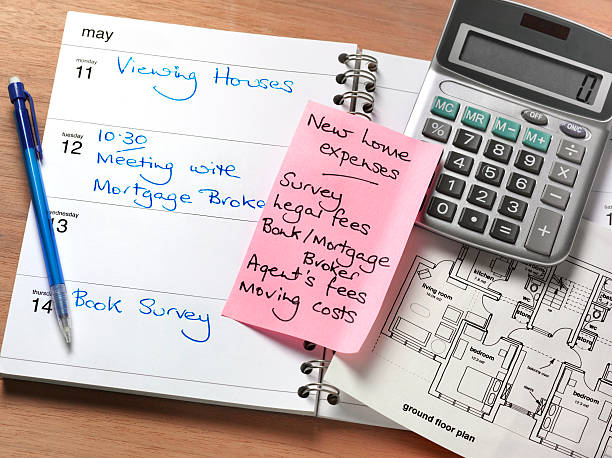 may
monday
11
Viewing Houses
tuesday
12
10.30
Meeting with
Mortgage Broke
wednesday
13
thursday
14
Book Survey
New home
expenses
Survey
Legal fees
Bank/Mortgage
Broker
Agent's fees
Moving costs
0
MC MR M- M+ OFF ON/C
% 7 8 9 ÷
4 5 6 ×
1 2 3 -
0 . = +
living room
kitchen
wc
wc
bedroom
bedroom
ground floor plan